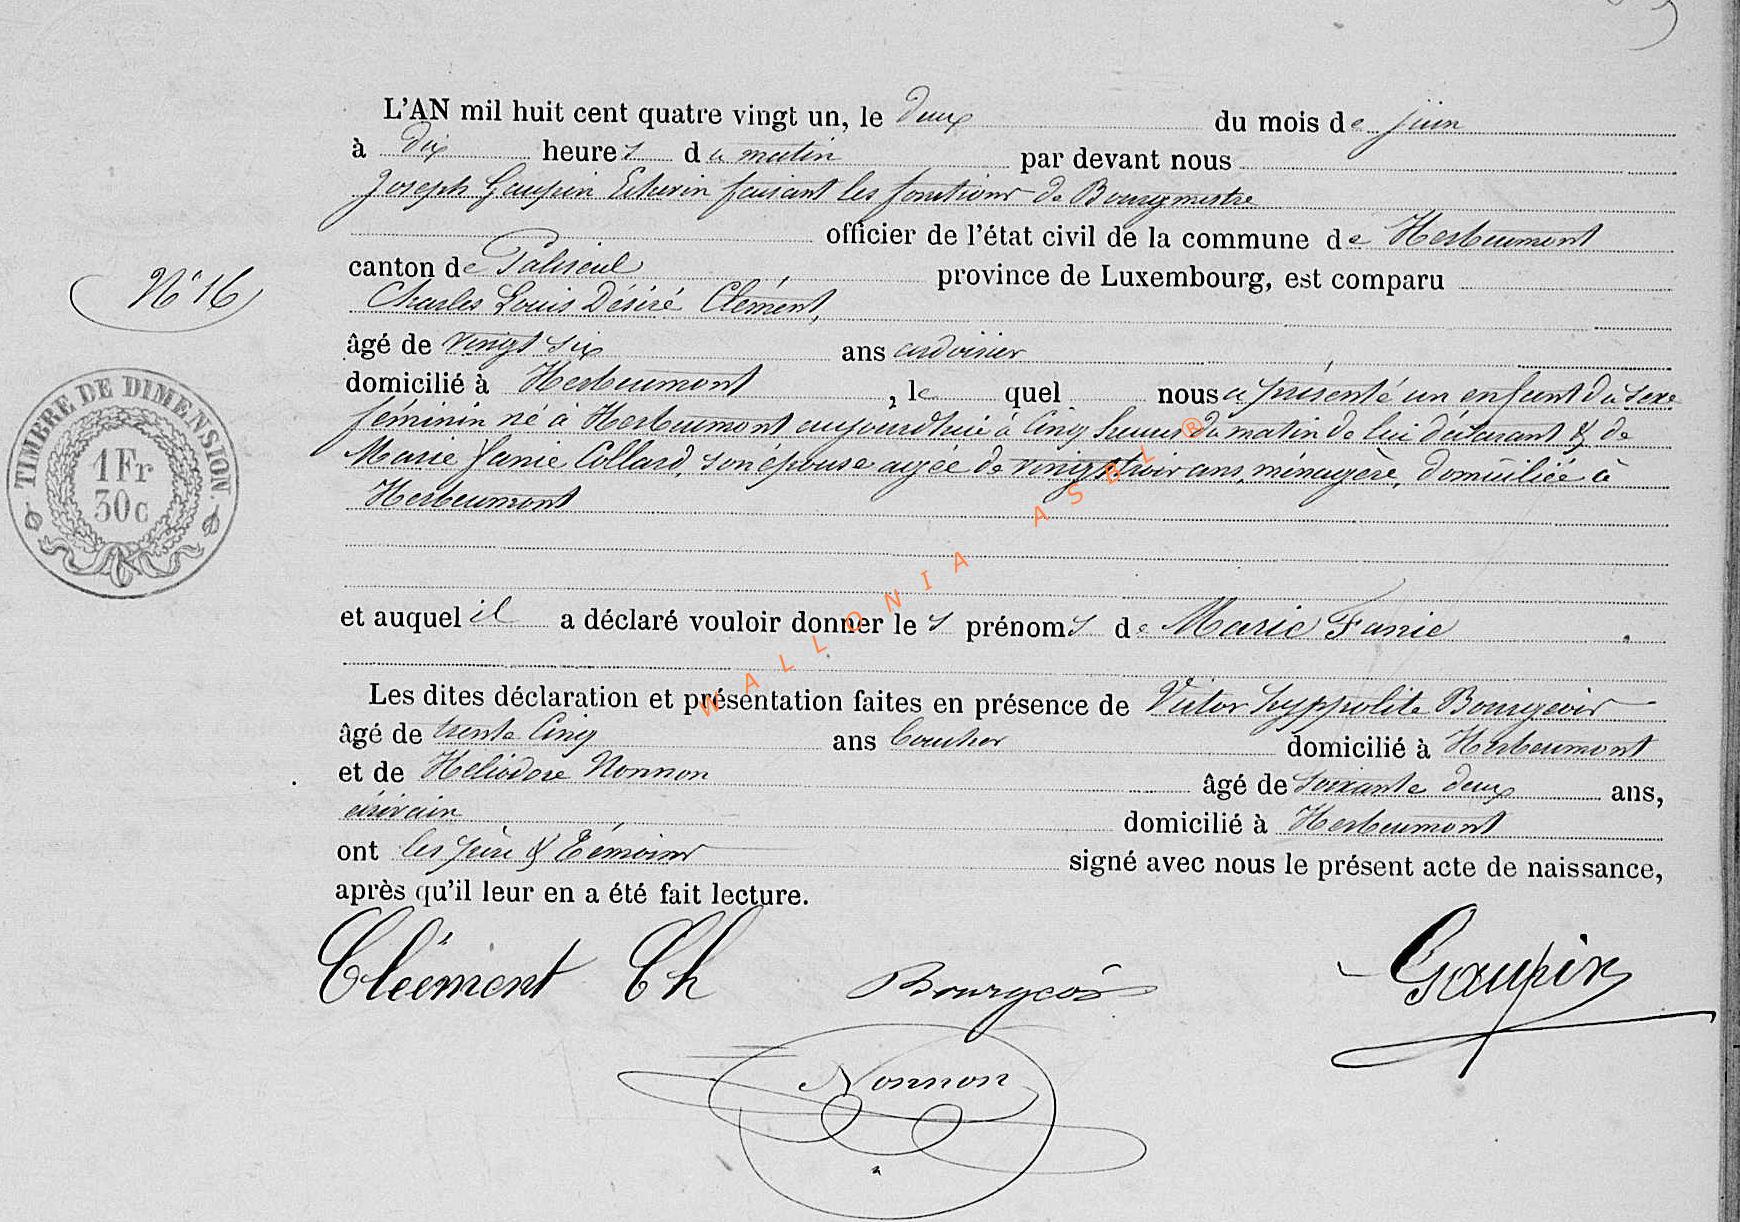 L'AN mil huit cent quatre vingt un, le deux du mois de juin
à dix heures du matin par devant nous
Joseph Gaupin Echevin faisant les fonctions de Bourgmestre
officier de l'état civil de la commune de Herbeumont
N° 16
canton de Paliseul province de Luxembourg, est comparu
Charles Louis Désiré Clément,
âgé de vingt six ans ardoisier
domicilié à Herbeumont, le quel nous a présenté un enfant du sexe
féminin né à Herbeumont aujourd'hui à cinq heures du matin de lui déclarant & de
Marie Fanie Collard, son épouse agée de vingt trois ans, ménagère, domiciliée à
Herbeumont
TIMBRE DE DIMENSION
1Fr
30c
et auquel il a déclaré vouloir donner les prénoms de Marie Fanie
Les dites déclaration et présentation faites en présence de Victor Hyppolite Bourgeois
âgé de trente cinq ans boucher domicilié à Herbeumont
et de Héliodore Nonnon âgé de soixante deux ans,
écrivain domicilié à Herbeumont
ont les père & témoins signé avec nous le présent acte de naissance,
après qu'il leur en a été fait lecture.
Clément Ch Bourgeois Gaupin
Nonnon
WALLONIA ASBL ®